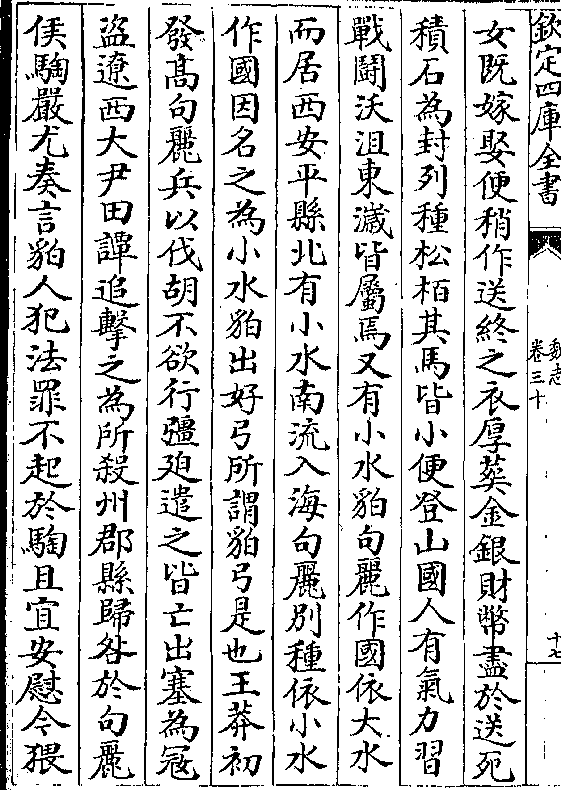 欽定四庫全書
魏志
卷三十
十七
女既嫁娶便稍作送終之衣厚葬金銀財幣盡於送死
積石為封列種松栢其馬皆小便登山國人有氣力習
戰鬭沃沮東濊皆屬焉又有小水貊句麗作國依大水
而居西安平縣北有小水南流入海句麗別種依小水
作國因名之為小水貊出好弓所謂貊弓是也王莽初
發髙句麗兵以伐胡不欲行彊廹遣之皆亡出塞為冦
盜遼西大尹田譚追擊之為所殺州郡縣歸咎於句麗
侯騊嚴尤奏言貊人犯法罪不起於騊且宜安慰今猥